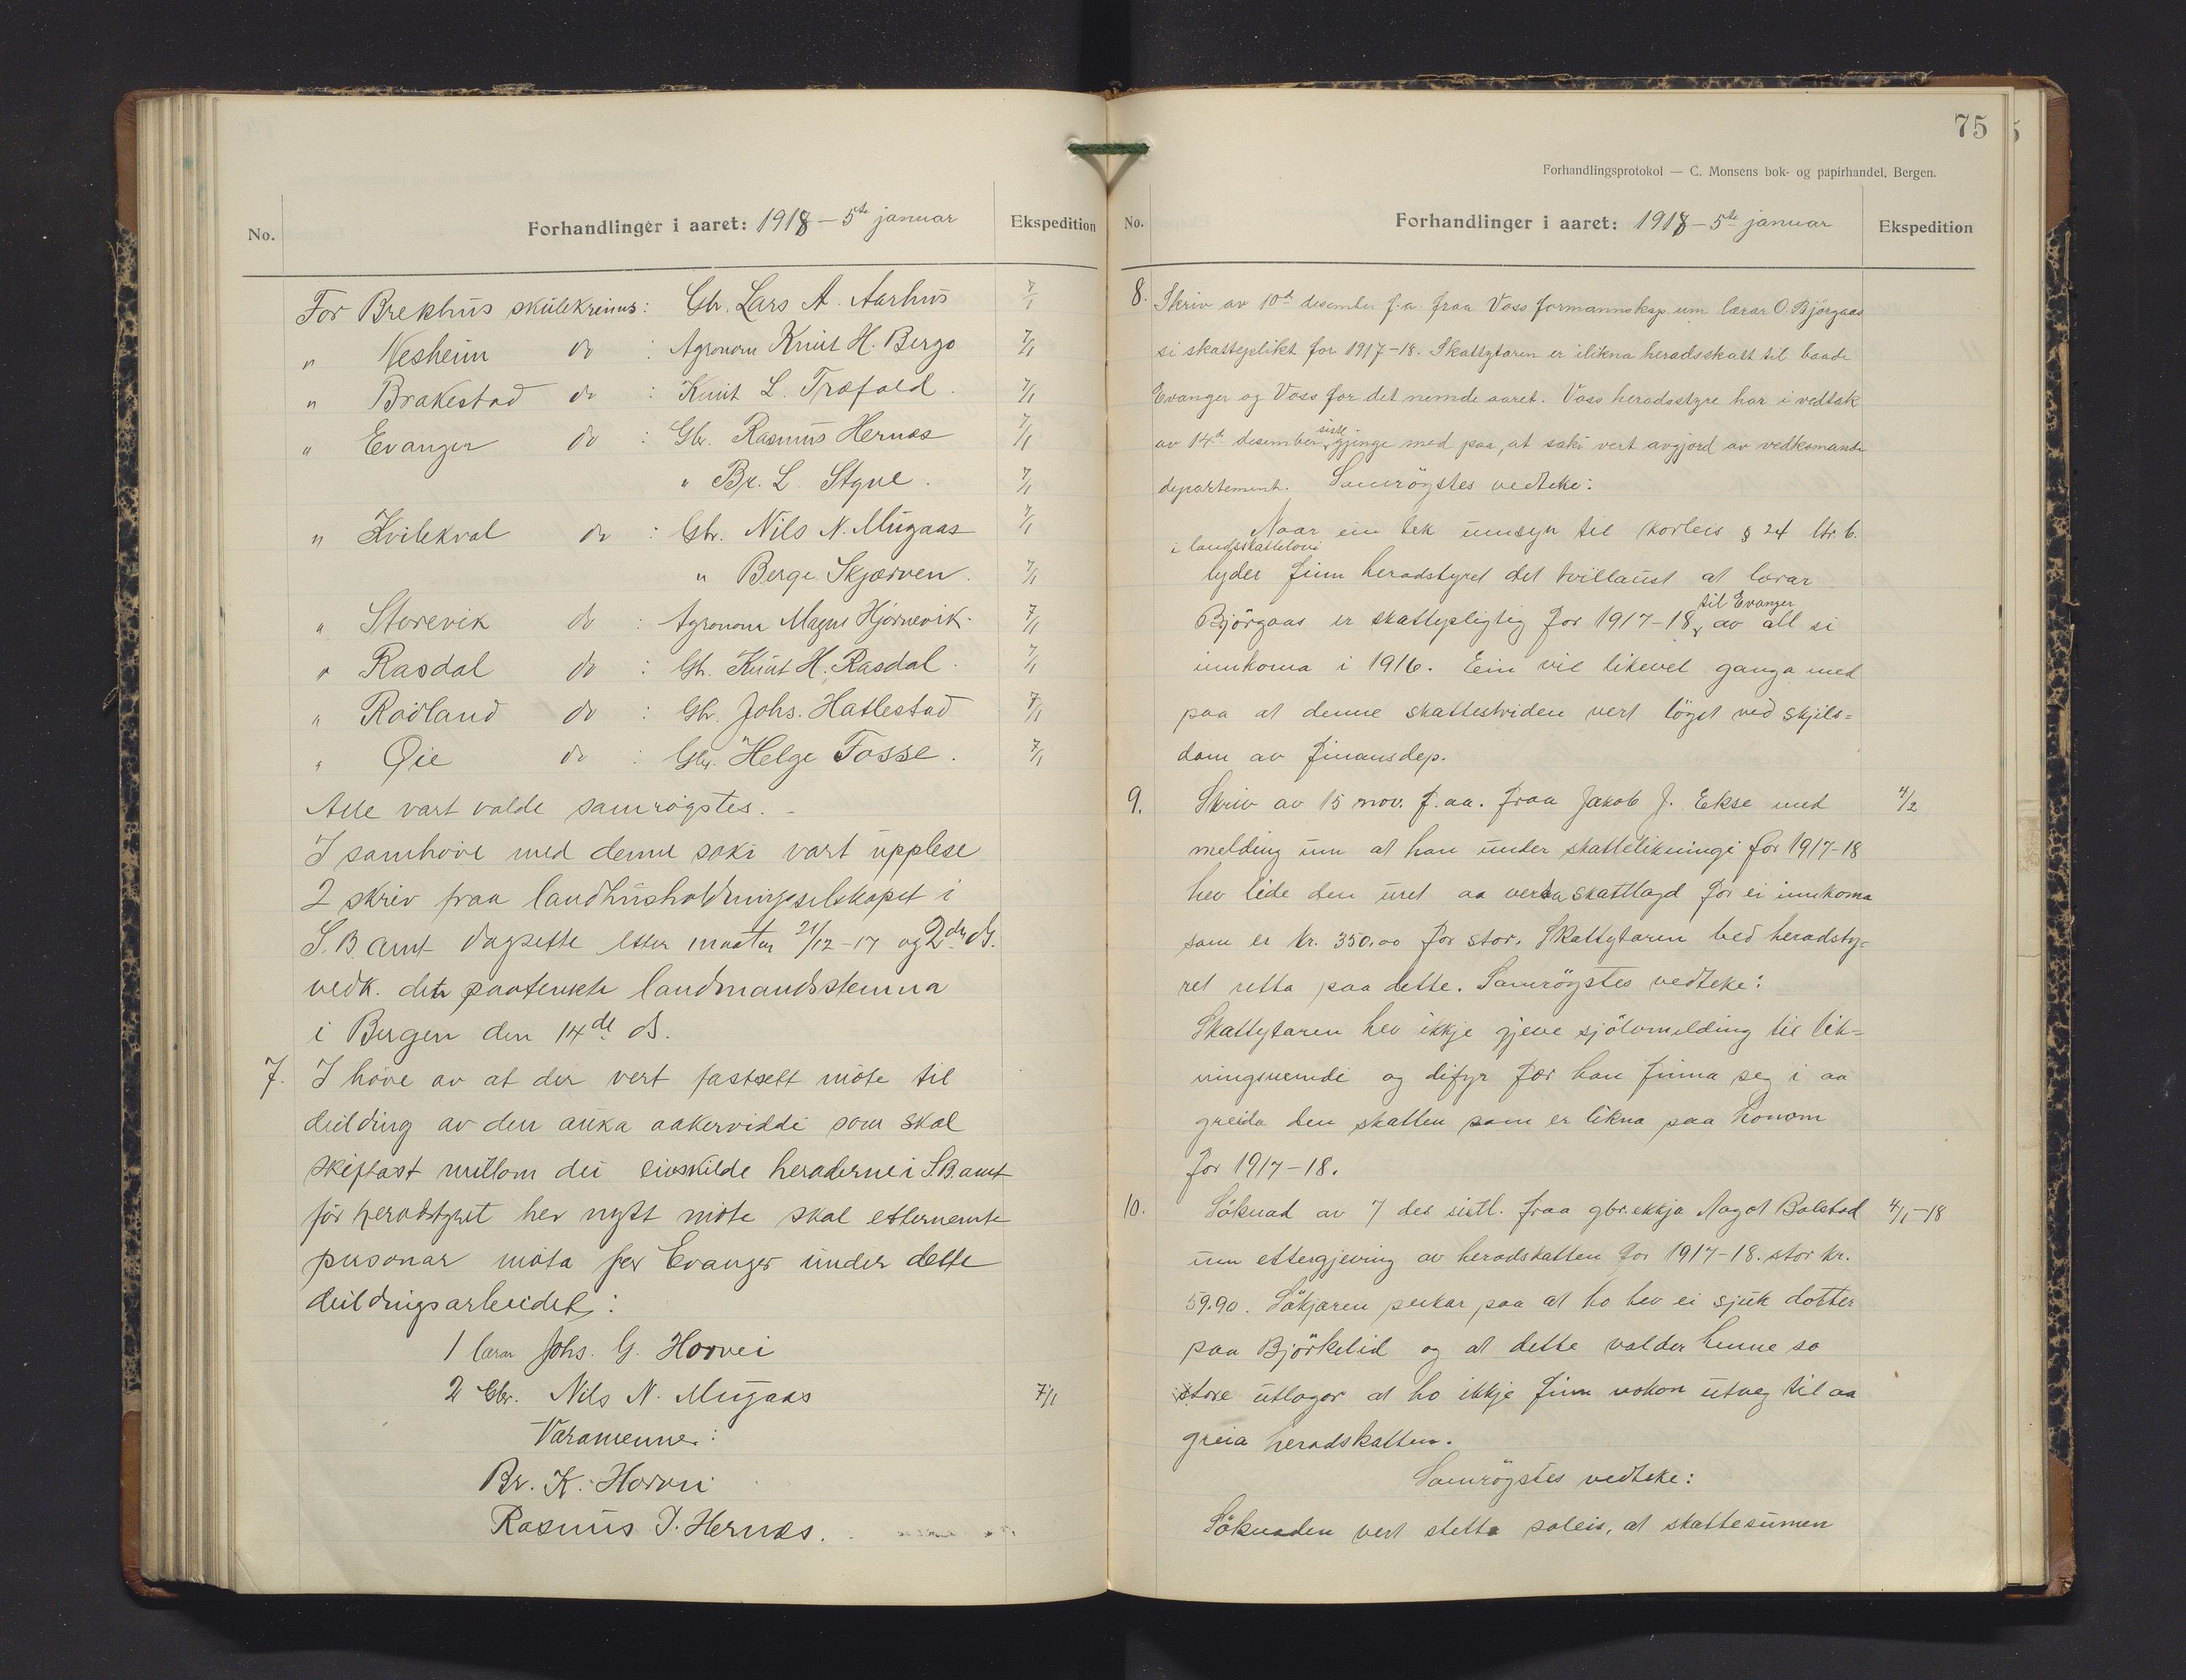 No.
Forhandlinger i aaret: 1918 – 5te januar
Ekspedition
For Brekhus skulekrins: Gbr. Lars A. Aarhus 7/1
" Nesheim do : Agronom Knut H. Bergo 7/1
" Brakestad do : Knut L. Træfald. 7/1
" Evanger do : Gbr. Rasmus Hernes 7/1
" Br. L. Styve. 7/1
" Kvilekval do : Gbr. Nils N. Mugaas 7/1
" Berge Skjerven. 7/1
" Storevik do : Agronom Magne Hjørnevik. 7/1
" Rasdal do : Gbr. Knut H. Rasdal. 7/1
" Rødland do : Gbr. Johs. Hatlestad 7/1
" Øie do : Gbr. Helge Fosse. 7/1
Alle vart valde samrøystes. –
I samhøve med denne saki vart upplese
2 skriv fraa landhusholdningsselskapet i
S. B. amt dagsette etter maaten 21/12–17 og 2dre ds.
vedk. den paatenkte landmandsstemna
i Bergen den 14de ds.
7. I høve av at der vert fastsett møte til
deilding av den auka aakervidde som skal
skiftast millom dei einskilde heraderne i S.B. amt
før heradstyret hev nytt møte skal etternemnte
personar møta for Evanger under dette
deildingsarbeidet:
1 lærar Johs. G. Horvei
2 Gbr. Nils N. Mugaas 7/1
Varamenner:
Br. K. Horvei
Rasmus I. Hernes.
75
Forhandlingsprotokol — C. Monsens bok- og papirhandel, Bergen.
No.
Forhandlinger i aaret: 1918 – 5te januar
Ekspedition
8. Skriv av 10de desember f.a. fraa Voss formannskap um lærar O. Bjørgaas
si skatteplikt for 1917–18. Skattytaren er ilikna heradsskatt til baade
Evanger og Voss for det nemde aaret. Voss heradsstyre har i vedtak
av 14de desember sistl. gjenge med paa, at saki vert avgjord av vedkomande
departement. Samrøystes vedteke:
Naar ein tek umsyn til korleis § 24 ltr. b.
i landsskattelovi
lyder finn heradstyret det tvillaust at lærar
Björgaas er skattepligtig for 1917–18 til Evanger av all si
innkoma i 1916. Ein vil likevel ganga med
paa at denne skattestriden vert löyst ved skjils=
dom av finansdep.
9. Skriv av 15 nov. f.aa. fraa Jakob J. Ekse med 4/2
melding um at han under skattelikningi for 1917–18
hev lide den uret aa verda skattlagd for ei innkoma
som er kr. 350.00 for stor. Skattytaren bed heradsty=
ret retta paa dette. Samröystes vedteke:
Skattytaren hev ikkje gjeve sjölvmelding til lik=
ningsnemdi og difyr fær han finna seg i aa
greida den skatten som er likna paa honom
for 1917–18.
10. Söknad av 7 des sistl. fraa gbr. ekkja Aagot Bolstad 4/1–18
um ettergjeving av heradskatten for 1917–18. stor kr.
59.90. Sökjaren peikar paa at ho hev ei sjuk dotter
paa Björkelid og at dette valder henne so
store utlagor at ho ikkje finn nokon utveg til aa
greia heradskatten.
Samröystes vedteke:
Söknaden vert stetta soleis, at skattesumen